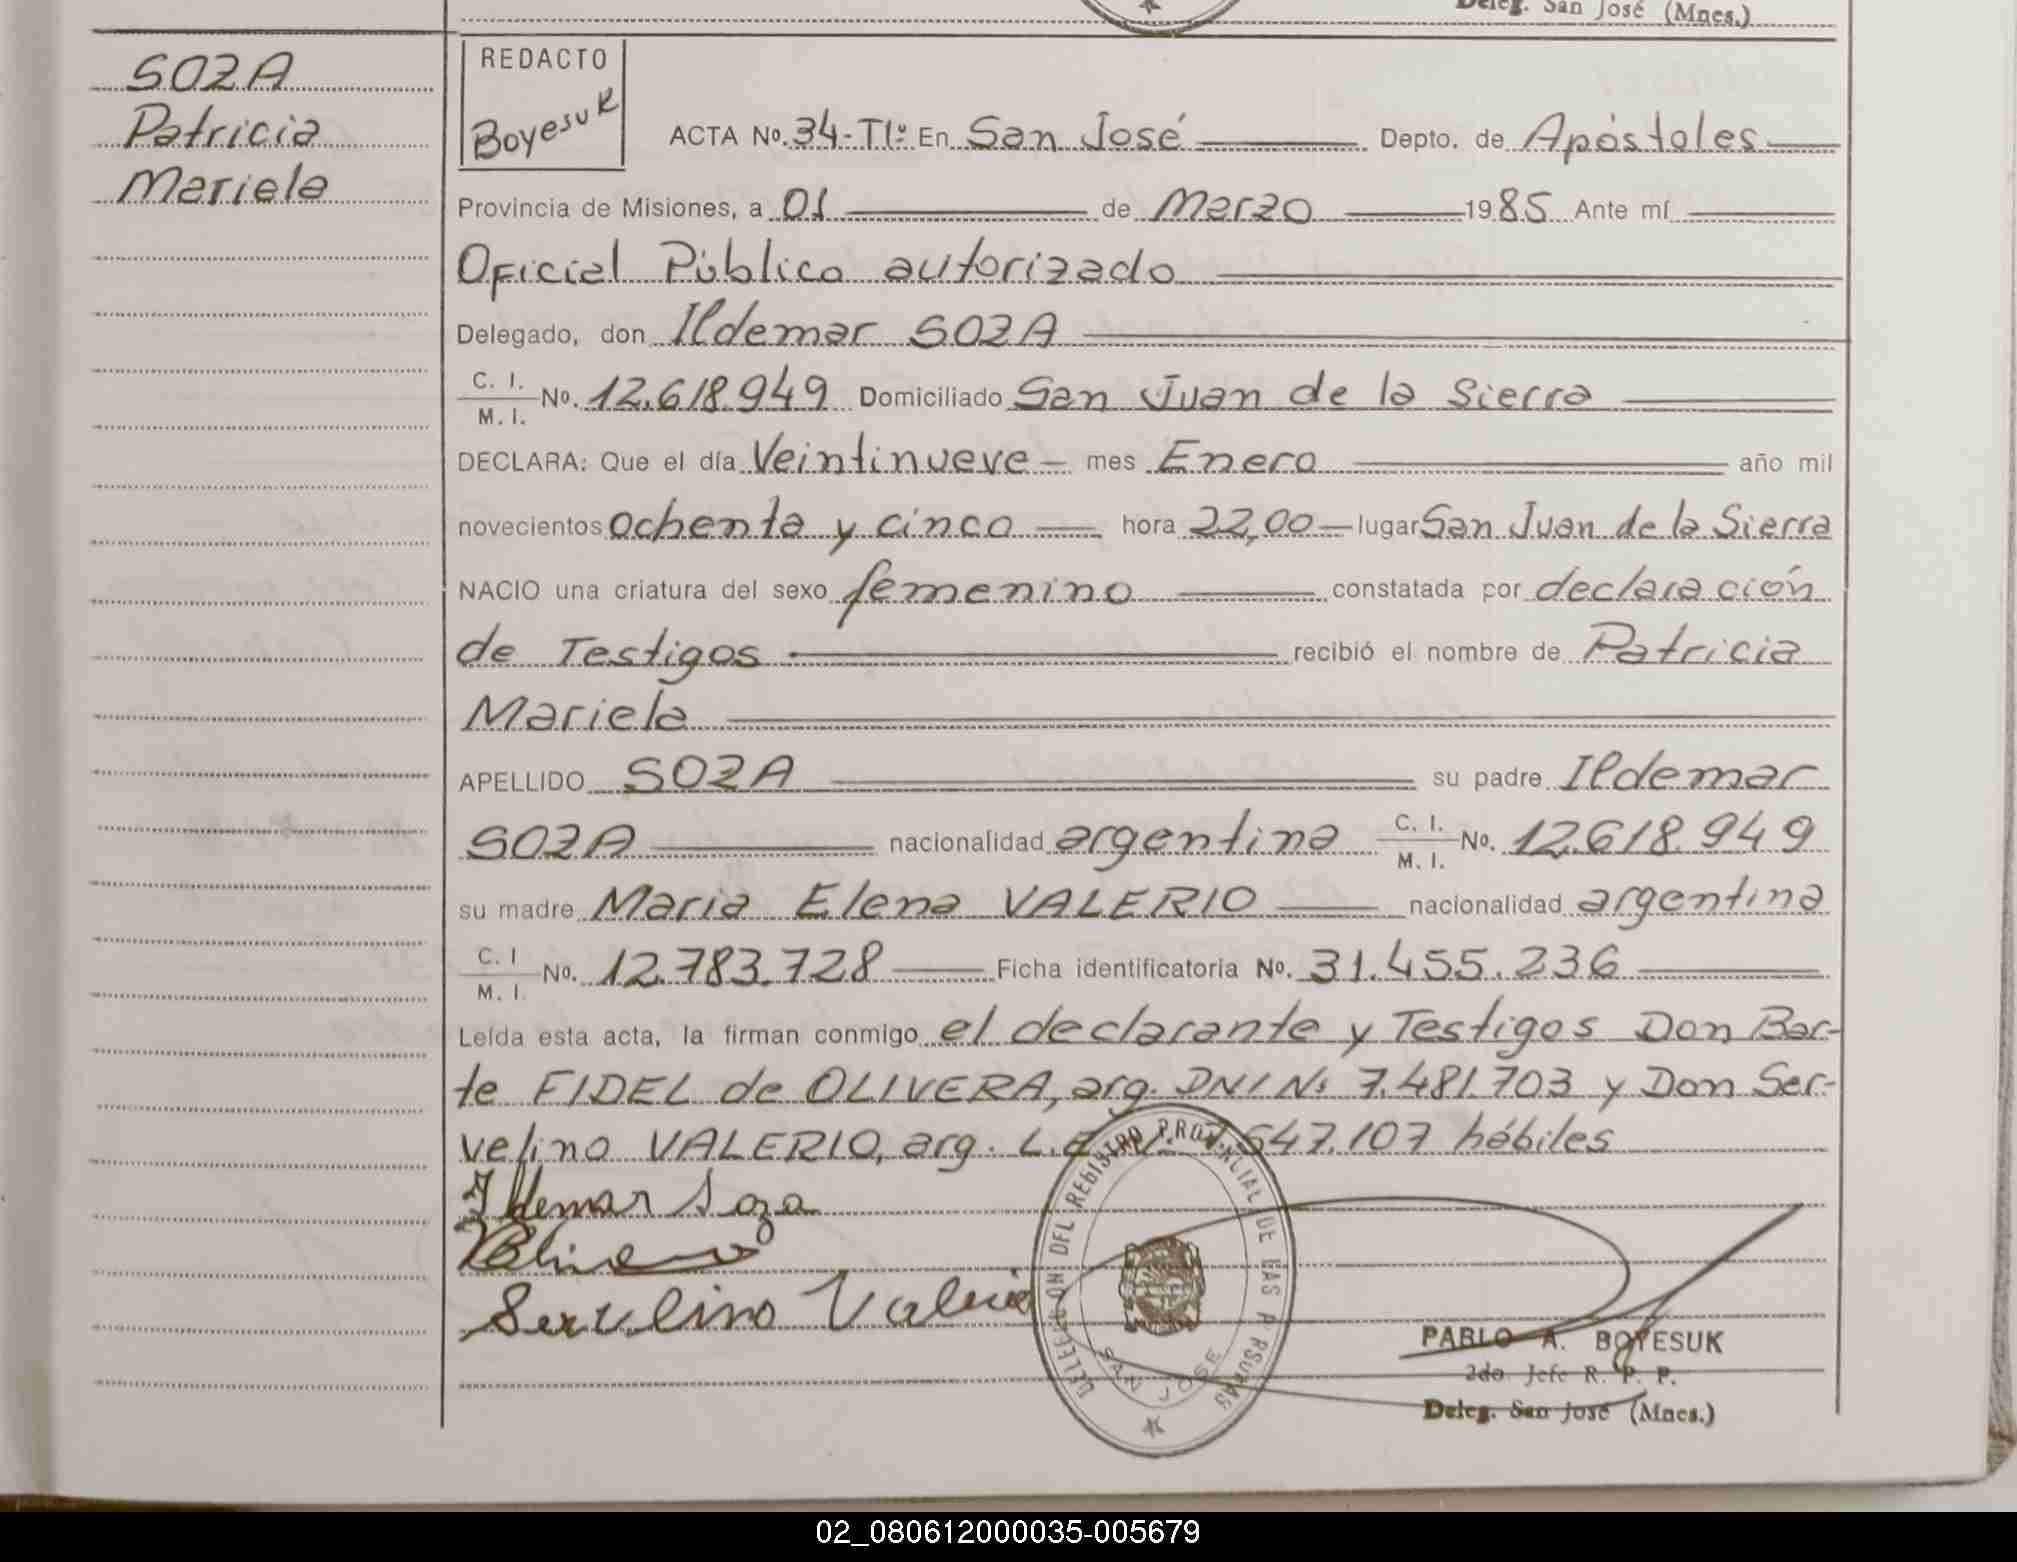 Deleg. San José (Mnes.)
SOZA
Patricia
Mariela
REDACTO
Boyesuk
ACTA No. 34-T1º En San José Depto. de Apóstoles
Provincia de Misiones, a 01 de Marzo 1985 Ante mí
Oficial Público autorizado
Delegado, don Ildemar SOZA
C. I. / M. I. No. 12.618.949 Domiciliado San Juan de la Sierra
DECLARA: Que el día Veintinueve mes Enero año mil
novecientos ochenta y cinco hora 22,00 lugar San Juan de la Sierra
NACIO una criatura del sexo femenino constatada por declaración
de Testigos recibió el nombre de Patricia
Mariela
APELLIDO SOZA su padre Ildemar
SOZA nacionalidad argentina C. I. / M. I. No. 12.618.949
su madre Maria Elena VALERIO nacionalidad argentina
C. I / M. I. No. 12.783.728 Ficha identificatoria No. 31.455.236
Leída esta acta, la firman conmigo el declarante y Testigos Don Bar-
te FIDEL de OLIVERA, arg. DNI Nº 7.481.703 y Don Ser-
velino VALERIO, arg. L.E. 647.107 hábiles
Ildemar Soza
Servelino Valerio
DELEGACION DEL REGISTRO PROVINCIAL DE LAS PERSONAS
SAN JOSE
PABLO A. BOYESUK
2do Jefe R. P. P.
Deleg. San José (Mnes.)
02_080612000035-005679